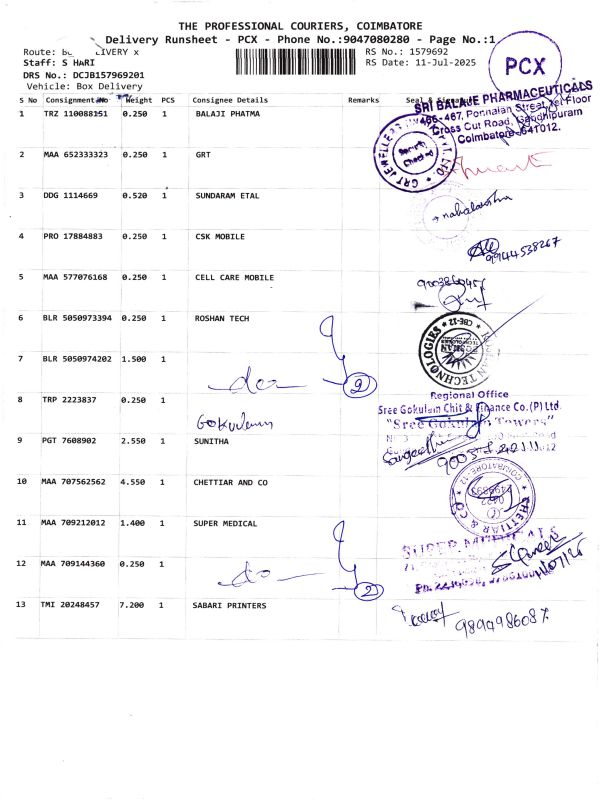 THE PROFESSIONAL COURIERS, COIMBATORE
Delivery Runsheet - PCX - Phone No.:9047080280 - Page No.:1
Route: BO LIVERY x
RS No.: 1579692
Staff: S HARI
RS Date: 11-Jul-2025
DRS No.: DCJB157969201
Vehicle: Box Delivery
PCX
S No Consignment No Weight PCS Consignee Details Remarks Seal & Signature
SRI BALAJE PHARMACEUTICALS
466-467, Ponnaian Street, 1st Floor
Cross Cut Road, Gandhipuram
Coimbatore-641012.
1 TRZ 110088151 0.250 1 BALAJI PHATMA
GRT JEWELLERS
PVT LTD
Security
Checked
2 MAA 652333323 0.250 1 GRT
3 DDG 1114669 0.520 1 SUNDARAM ETAL
mahalakshma
4 PRO 17884883 0.250 1 CSK MOBILE
9944538267
5 MAA 577076168 0.250 1 CELL CARE MOBILE
6 BLR 5050973394 0.250 1 ROSHAN TECH
CBE-12
TECHNOLOGIES
7 BLR 5050974202 1.500 1
2
8 TRP 2223837 0.250 1
Regional Office
Sree Gokulam Chit & Finance Co.(P) Ltd.
"Sree Gokulam Towers"
Gokulam
9 PGT 7608902 2.550 1 SUNITHA
10 MAA 707562562 4.550 1 CHETTIAR AND CO
CHETTIAR & CO
COIMBATORE-12
11 MAA 709212012 1.400 1 SUPER MEDICAL
SUPER
12 MAA 709144360 0.250 1
do
2
13 TMI 20248457 7.200 1 SABARI PRINTERS